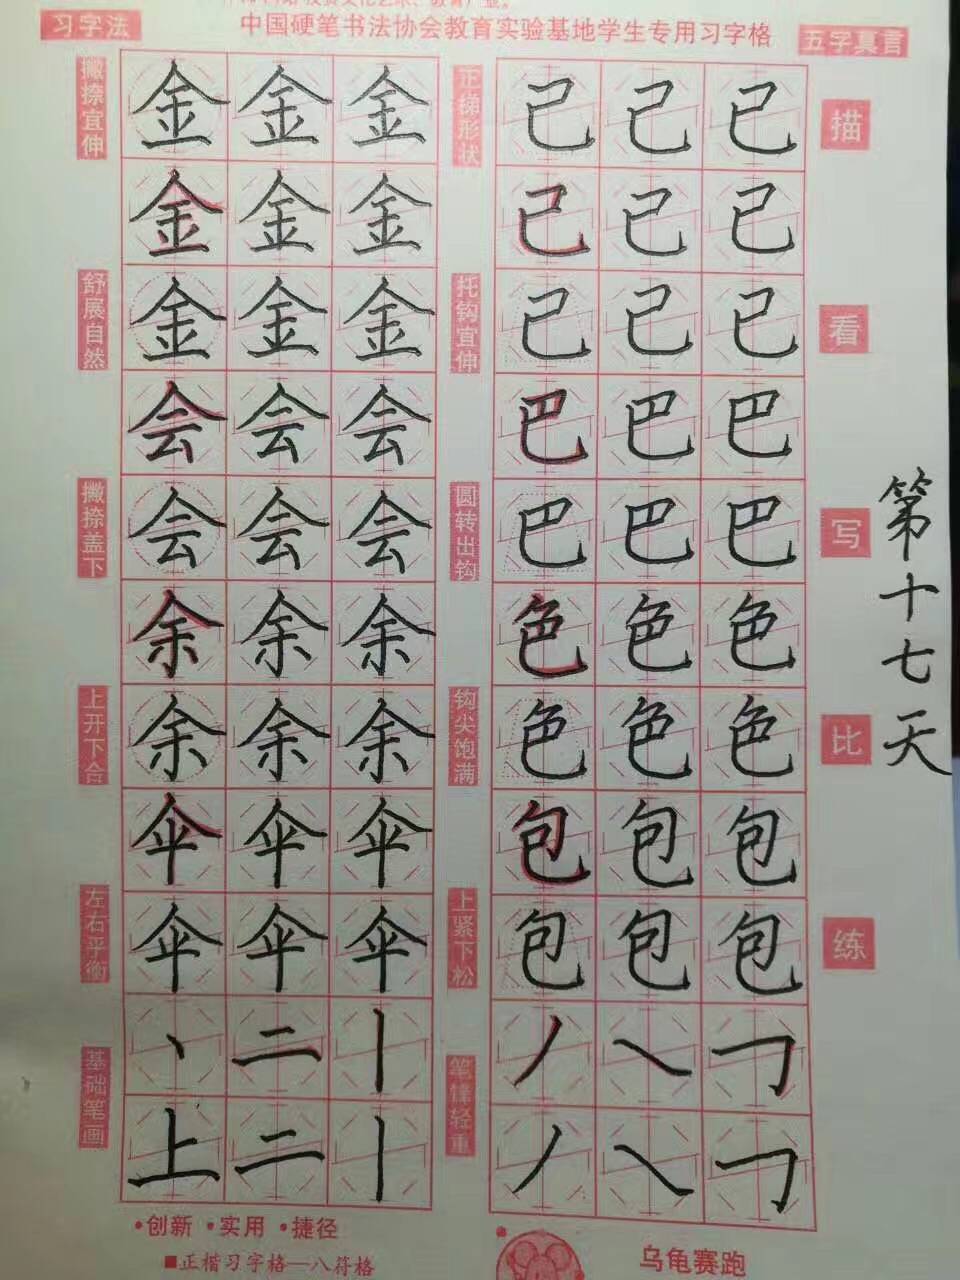 习字法
中国硬笔书法协会教育实验基地学生专用习字格
五字真言
撇捺宜伸
金金金
正梯形状
己己己
描
金金金
己己己
舒展自然
金金金
托钩宜伸
己己己
看
会会会
巴巴巴
撇捺盖下
会会会
圆转出钩
巴巴巴
写
余余余
色色色
上开下合
余余余
钩尖饱满
色色色
比
伞伞伞
包包包
左右平衡
伞伞伞
上紧下松
包包包
练
第十七天
基础笔画
丶二丨
笔锋轻重
丿㇏𠃌
上二丨
丿㇏𠃌
•创新 •实用 •捷径
■正楷习字格—八符格
乌龟赛跑